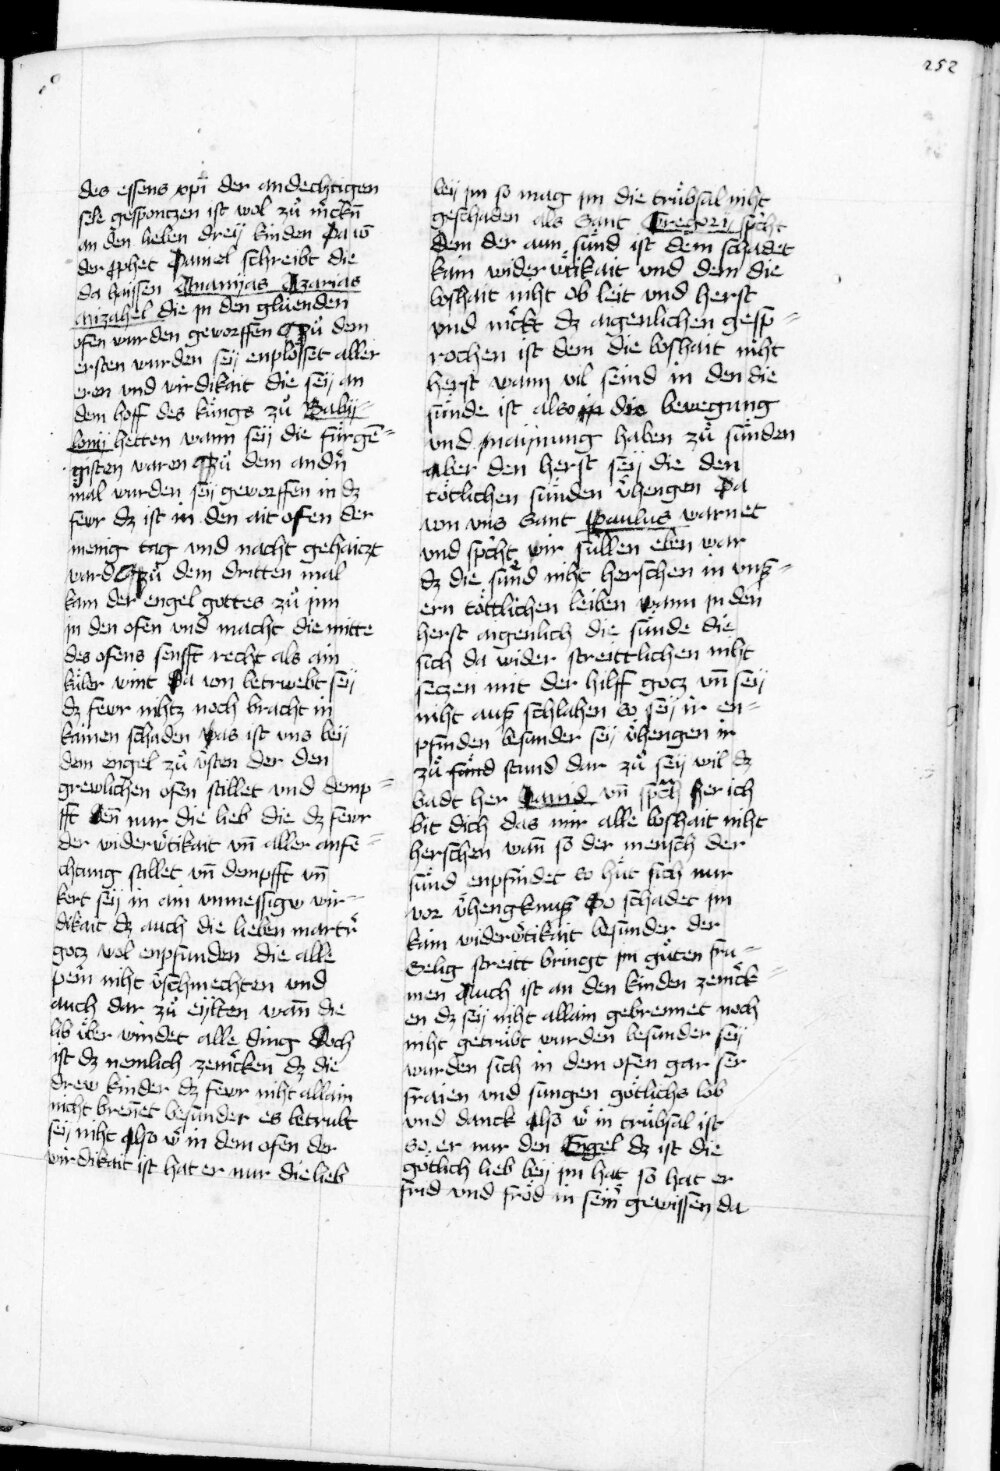 252
des essens xpī der andechtigen
sele gespontzen ist wol zů m̈ckn̄
an den lieben dreÿ kinden Da vō
der ꝓphet Daniel schreibt die
da haissen Ananÿas Azarias
Mizahel die jn den glüenden
ofen wurden geworffen Zů dem
ersten wurden seÿ enplösset aller
eren vnd wirdikait die seÿ an
dem hoff des küngs zů Babÿ-
lonÿ hetten wann seÿ die fürgē-
gisten waren Zů dem andn̄
mal wurden seÿ geworffen in dz
fewr dz ist in den ait ofen der
menig tag vnd nacht gehaiczt
ward Zů dem dritten mal
kam der engel gottes zů jnn
jn den ofen vnd macht die mitte
des ofens senfft recht als ain
küler wint Da von betrwebt seÿ
dz fewr nihtz noch bracht in
kainen schaden Was ist vns beÿ
dem engel zů v̈sten der den
grewlichen ofen stillet vnd demp-
fft den̄ nur die lieb die dz fewr
der widerẅtikait vn̄ aller anfe-
chtung stillet vn̄ dempfft vn̄
kert seÿ in ain vnmessigw wir-
dikait dz auch die lieben martr̄
gotz wol enpfunden die alle
pein niht v̈schmechten vnd
auch dar zů eylten wan̄ die
lib über windet alle ding Doch
ist dz nemlich zem̈cken dz die
drew kinder dz fewr niht allain
nicht bren̄et besunder es betrubt
seÿ niht Also ẅ in dem ofen der
wirdikait ist hat er nur die lieb
beÿ jm so mag jm die trübsal niht
geschaden als Sant Gregorÿ sp̄cht
dem der aun sünd ist dem schadet
kain widerẅtikait vnd dem die
boshait niht ob leit vnd herst
vnd m̈ckt dz aigenlichen gesp-
rochen ist dem die boshait niht
herst wann vil seind in den die
sünde ist also jn die bewegung
vnd maÿnung haben zů sünden
Aber den herst seÿ die den
tötlichen sünden v̈hengen Da
von vns Sant Paulus warnet
vnd sp̄cht wir süllen eben war
dz die sünd niht herschen in vnß-
ern töttlichen leiben wann jn den
herst aigenlich die sünde die
sich da wider streittlichen niht
seczen mit der hilff gocz vn̄ seÿ
niht auß schlahen so seÿ ir en-
pfinden besunder seÿ v̈hengen ir
zů sünd stund dar zů seÿ wil dz
badt her Dauid vn̄ sp̄ch her ich
bit dich das mir alle boshait niht
herschen wan̄ so der mensch der
sünd enpfindet so hüt sich nur
vor v̈hengknuß So schadet jm
kain widerẅtikait besunder der
Selig streitt bringt jm gůten fru-
men Auch ist an den kinden zem̈ck-
en dz seÿ niht allain gebrennet noch
niht getrübt wurden besunder seÿ
wurden sich in dem ofen gar ser
fraien vnd sungen götlichs lob
vnd danck Also ẅ in trübsal ist
so er nur den Engel dz ist die
götlich lieb beÿ jm hat so hat er
frid vnd fröd in sein̄ gewissen da